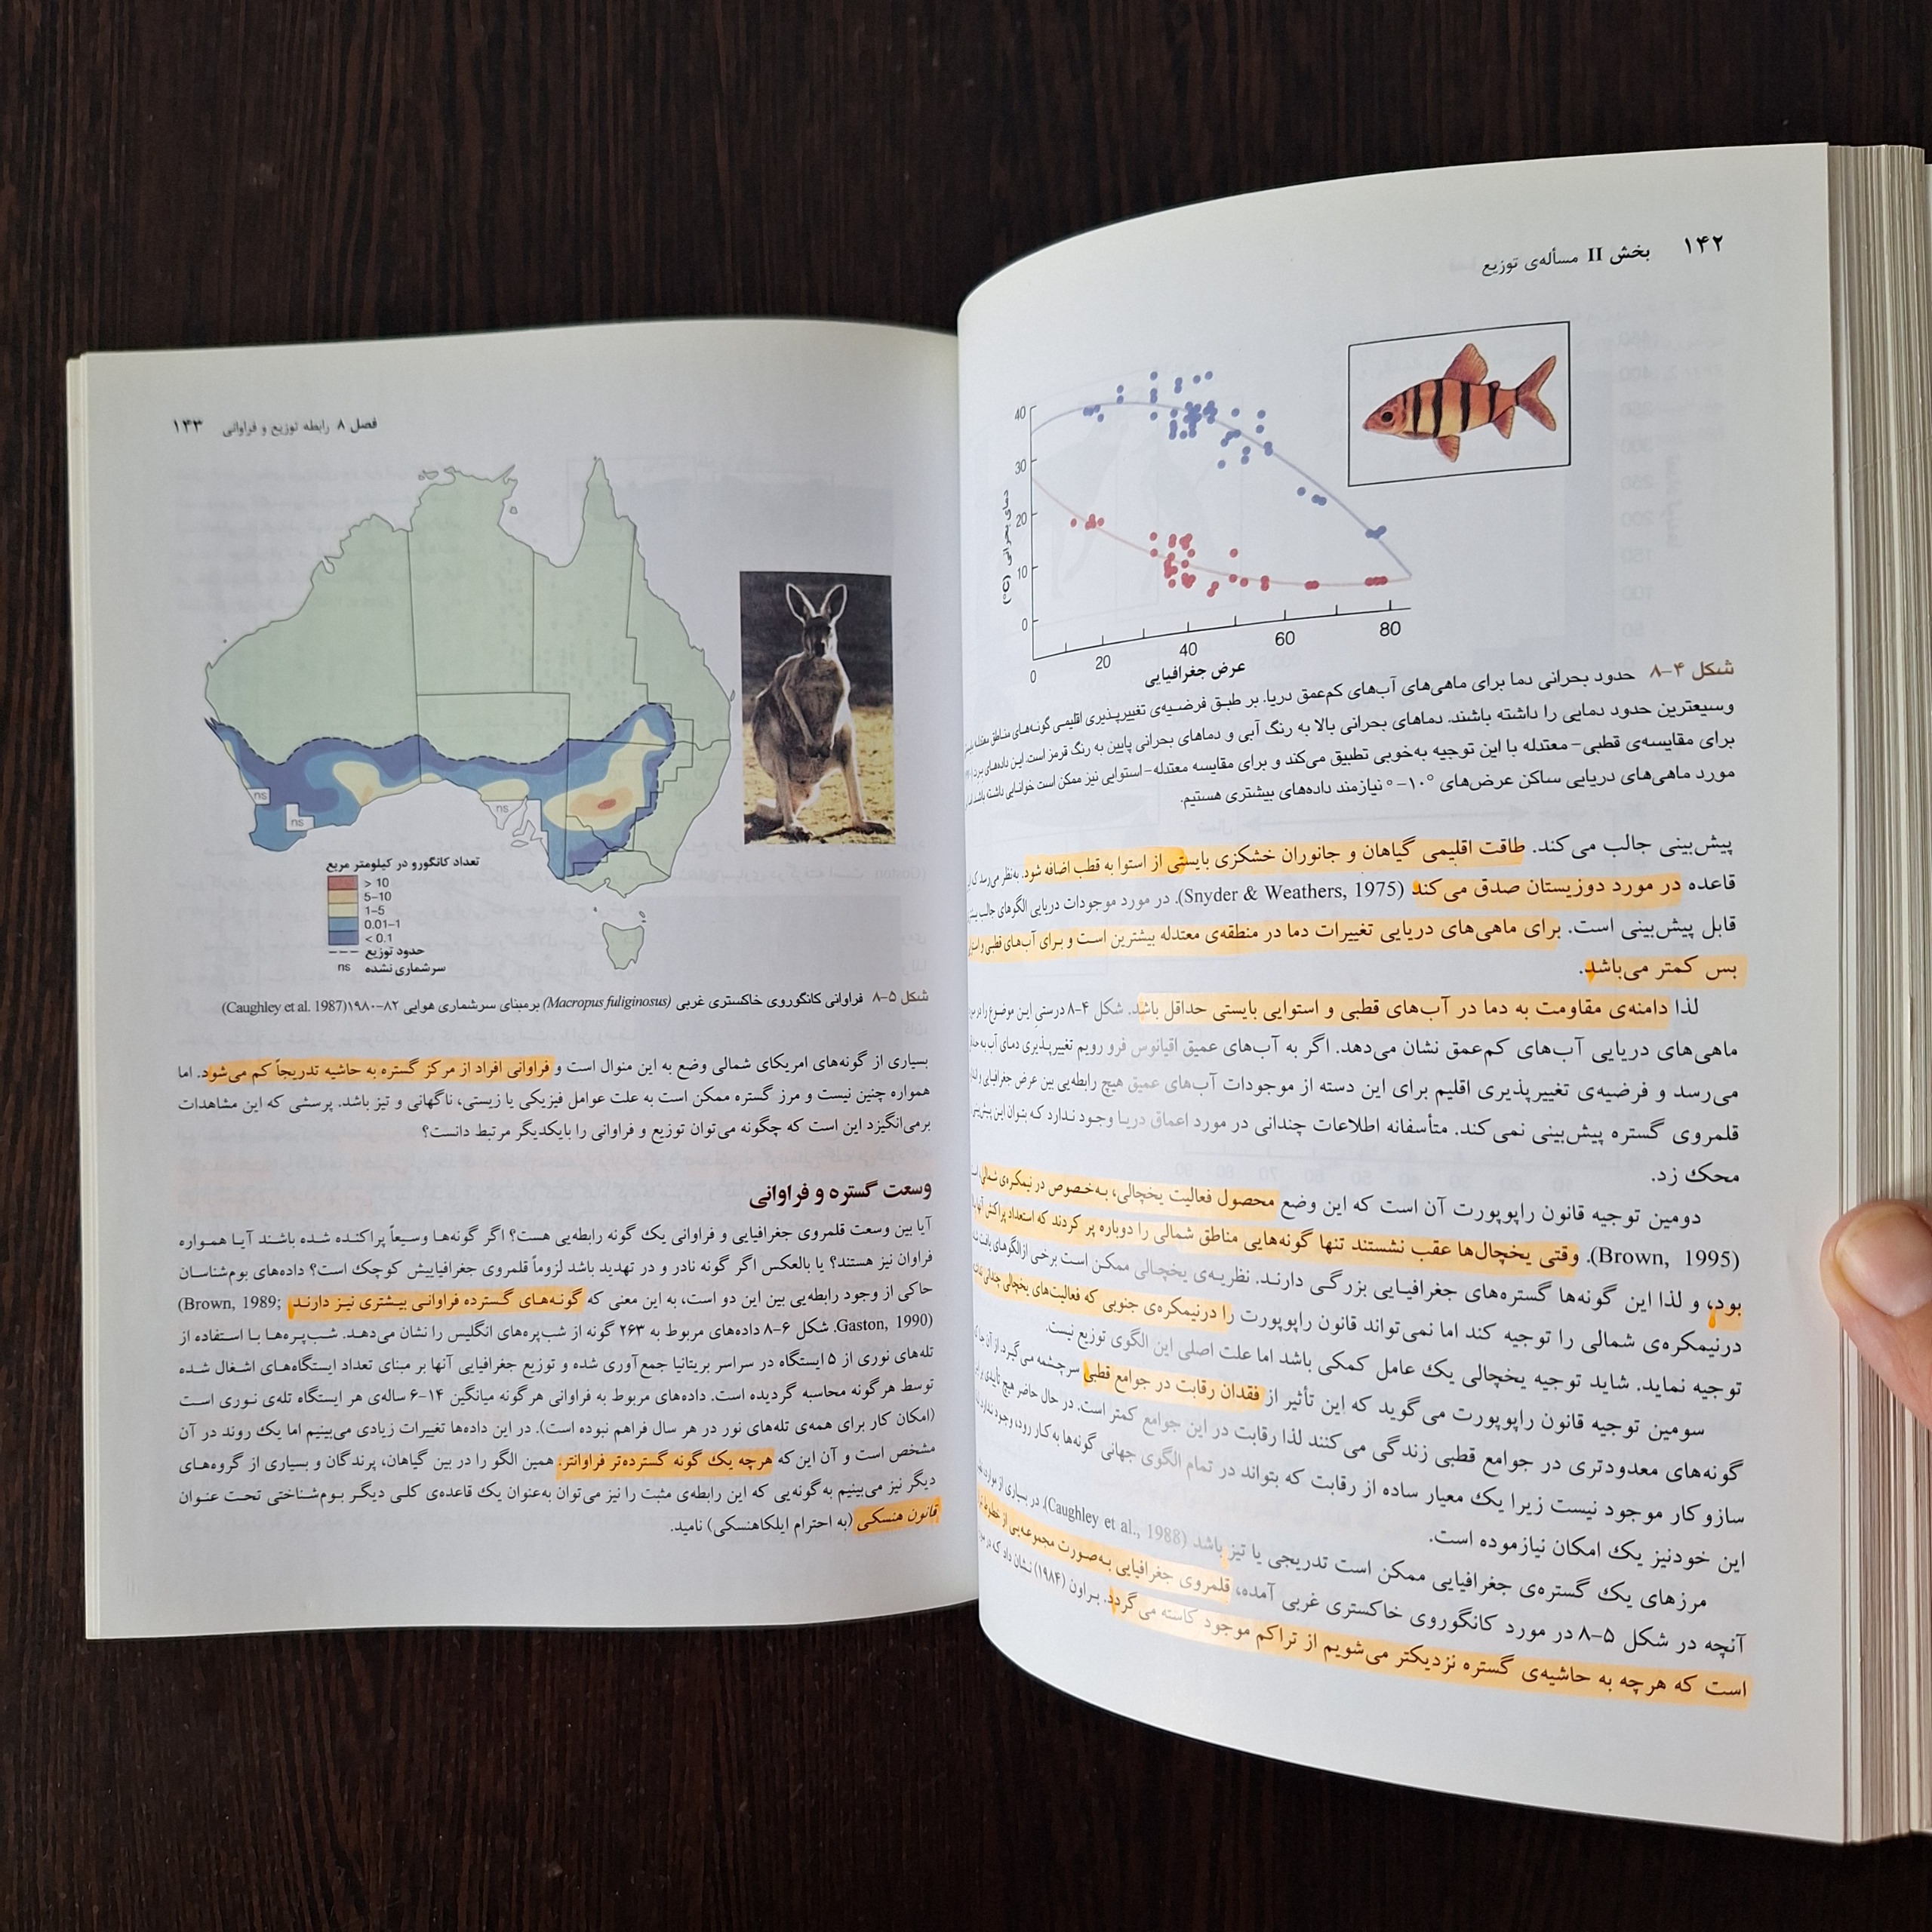 ۱۴۲ بخش II مسأله‌ی توزیع
40
30
20
10
0
دمای بحرانی (°C)
0 20 40 60 80
عرض جغرافیایی
شکل ۴-۸ حدود بحرانی دما برای ماهی‌های آب‌های کم‌عمق دریا. بر طبق فرضیه‌ی تغییرپذیری اقلیمی گونه‌های مناطق معتدله
وسیعترین حدود دمایی را داشته باشند. دماهای بحرانی بالا به رنگ آبی و دماهای بحرانی پایین به رنگ قرمز است. این داده‌های
برای مقایسه‌ی قطبی- معتدله با این توجیه به‌خوبی تطبیق می‌کند و برای مقایسه معتدله- استوایی نیز ممکن است خوانایی داشته باشد
مورد ماهی‌های دریایی ساکن عرض‌های ۱۰°-۰° نیازمند داده‌های بیشتری هستیم.
پیش‌بینی جالب می‌کند. طاقت اقلیمی گیاهان و جانوران خشکزی بایستی از استوا به قطب اضافه شود. به‌نظر می‌رسد که
قاعده در مورد دوزیستان صدق می‌کند (Snyder & Weathers, 1975). در مورد موجودات دریایی الگوهای جالب
قابل پیش‌بینی است. برای ماهی‌های دریایی تغییرات دما در منطقه‌ی معتدله بیشترین است و برای آب‌های قطبی و
بس کمتر می‌باشد.
لذا دامنه‌ی مقاومت به دما در آب‌های قطبی و استوایی بایستی حداقل باشد. شکل ۴-۸ درستی این موضوع را در
ماهی‌های دریایی آب‌های کم‌عمق نشان می‌دهد. اگر به آب‌های عمیق اقیانوس فرو رویم تغییرپذیری دمای آب به
می‌رسد و فرضیه‌ی تغییرپذیری اقلیم برای این دسته از موجودات آب‌های عمیق هیچ رابطه‌یی بین عرض جغرافیایی و
قلمروی گستره پیش‌بینی نمی‌کند. متأسفانه اطلاعات چندانی در مورد اعماق دریا وجود ندارد که بتوان این
محک زد.
دومین توجیه قانون راپوپورت آن است که این وضع محصول فعالیت یخچالی، به‌خصوص در نیمکره‌ی شمالی
(Brown, 1995). وقتی یخچال‌ها عقب نشستند تنها گونه‌هایی مناطق شمالی را دوباره پر کردند که استعداد پراکنش
بود، و لذا این گونه‌ها گستره‌های جغرافیایی بزرگی دارند. نظریه‌ی یخچالی ممکن است برخی ازالگوهای
درنیمکره‌ی شمالی را توجیه کند اما نمی‌تواند قانون راپوپورت را درنیمکره‌ی جنوبی که فعالیت‌های یخچالی چندانی
توجیه نماید. شاید توجیه یخچالی یک عامل کمکی باشد اما علت اصلی این الگوی توزیع نیست.
سومین توجیه قانون راپوپورت می‌گوید که این تأثیر از فقدان رقابت در جوامع قطبی سرچشمه می‌گیرد. از آن جا
گونه‌های معدودتری در جوامع قطبی زندگی می‌کنند لذا رقابت در این جوامع کمتر است. در حال حاضر هیچ تأییدی
سازو کار موجود نیست زیرا یک معیار ساده از رقابت که بتواند در تمام الگوی جهانی گونه‌ها به‌کار رود، وجود
این خودنیز یک امکان نیازموده است.
مرزهای یک گستره‌ی جغرافیایی ممکن است تدریجی یا تیز باشد (Caughley et al., 1988). در بسیاری از
آنچه در شکل ۵-۸ در مورد کانگوروی خاکستری غربی آمده، قلمروی جغرافیایی به‌صورت مجموعه‌یی از
است که هرچه به حاشیه‌ی گستره نزدیکتر می‌شویم از تراکم موجود کاسته می‌گردد. براون (۱۹۸۴) نشان داد که در
فصل ۸ رابطه توزیع و فراوانی ۱۴۳
ns
ns
ns
تعداد کانگورو در کیلومتر مربع
> 10
5–10
1–5
0.01–1
< 0.1
حدود توزیع
ns سرشماری نشده
شکل ۵-۸ فراوانی کانگوروی خاکستری غربی (Macropus fuliginosus) برمبنای سرشماری هوایی ۸۲-۱۹۸۰(Caughley et al. 1987)
بسیاری از گونه‌های امریکای شمالی وضع به این منوال است و فراوانی افراد از مرکز گستره به حاشیه تدریجاً کم می‌شود. اما
همواره چنین نیست و مرز گستره ممکن است به علت عوامل فیزیکی یا زیستی، ناگهانی و تیز باشد. پرسشی که این مشاهدات
برمی‌انگیزد این است که چگونه می‌توان توزیع و فراوانی را بایکدیگر مرتبط دانست؟
وسعت گستره و فراوانی
آیا بین وسعت قلمروی جغرافیایی و فراوانی یک گونه رابطه‌یی هست؟ اگر گونه‌ها وسیعاً پراکنده شده باشند آیا همواره
فراوان نیز هستند؟ یا بالعکس اگر گونه نادر و در تهدید باشد لزوماً قلمروی جغرافیاییش کوچک است؟ داده‌های بوم‌شناسان
حاکی از وجود رابطه‌یی بین این دو است، به این معنی که گونه‌های گسترده فراوانی بیشتری نیز دارند (Brown, 1989;
Gaston, 1990). شکل ۶-۸ داده‌های مربوط به ۲۶۳ گونه از شب‌پره‌های انگلیس را نشان می‌دهد. شب‌پره‌ها با استفاده از
تله‌های نوری از ۵ ایستگاه در سراسر بریتانیا جمع‌آوری شده و توزیع جغرافیایی آنها بر مبنای تعداد ایستگاه‌های اشغال شده
توسط هرگونه محاسبه گردیده است. داده‌های مربوط به فراوانی هرگونه میانگین ۱۴-۶ ساله‌ی هر ایستگاه تله‌ی نوری است
(امکان کار برای همه‌ی تله‌های نور در هر سال فراهم نبوده است). در این داده‌ها تغییرات زیادی می‌بینیم اما یک روند در آن
مشخص است و آن این‌که هرچه یک گونه گسترده‌تر فراوانتر. همین الگو را در بین گیاهان، پرندگان و بسیاری از گروه‌های
دیگر نیز می‌بینیم به‌گونه‌یی که این رابطه‌ی مثبت را نیز می‌توان به‌عنوان یک قاعده‌ی کلی دیگر بوم‌شناختی تحت عنوان
قانون هنسکی (به احترام ایلکاهنسکی) نامید.